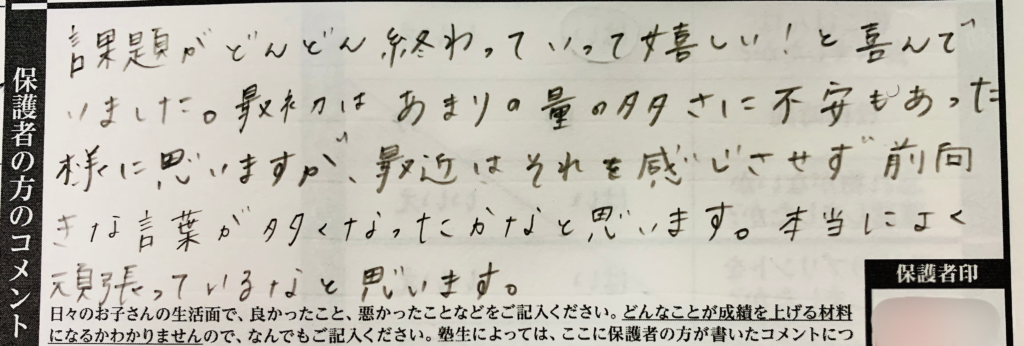 保護者の方のコメント
課題がどんどん終わっていって嬉しい!と喜んで
いました。最初はあまりの量の多さに不安もあった
様に思いますが、最近はそれを感じさせず前向
きな言葉が多くなったかなと思います。本当によく
頑張っているなと思います。
保護者印
日々のお子さんの生活面で、良かったこと、悪かったことなどをご記入ください。どんなことが成績を上げる材料
になるかわかりませんので、なんでもご記入ください。塾生によっては、ここに保護者の方が書いたコメントにつ